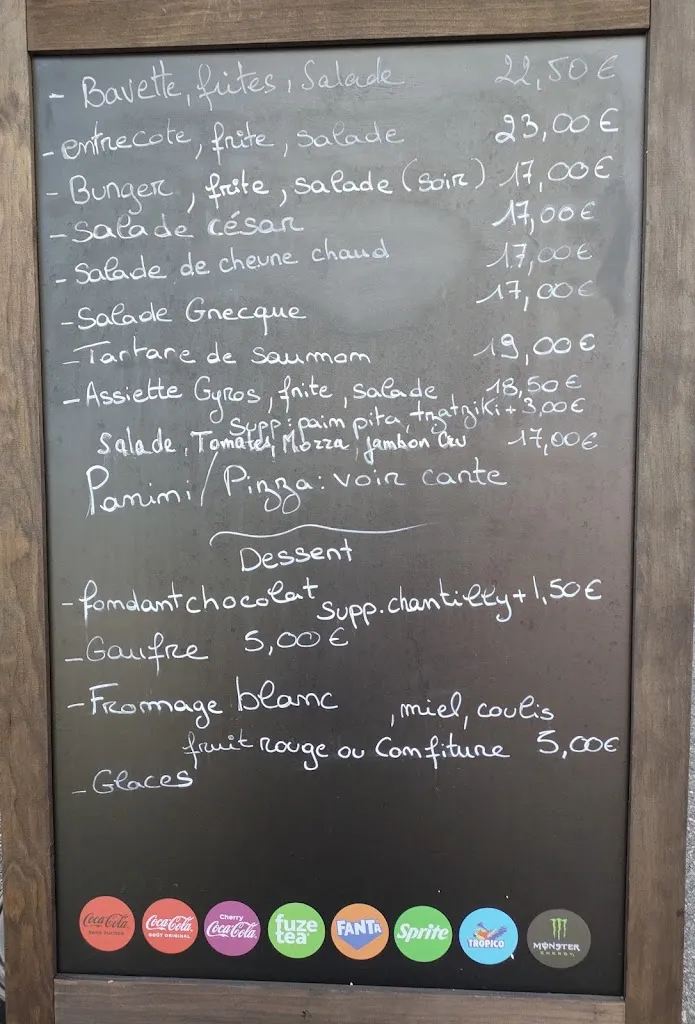 - Bavette, frites, Salade 22,50 €
- entrecote, frite, salade 23,00 €
- Burger, frite, salade (soir) 17,00 €
- Salade césar 17,00 €
- Salade de chevre chaud 17,00 €
- Salade Grecque 17,00 €
- Tartare de saumon 19,00 €
- Assiette Gyros, frite, salade 18,50 €
supp: pain pita, tzatziki + 3,00 €
Salade, Tomates, Mozza, jambon Cru 17,00 €
Panini / Pizza: voir carte
Dessert
- fondant chocolat supp. chantilly + 1,50 €
- Gaufre 5,00 €
- Fromage blanc, miel, coulis
fruit rouge ou Confiture 5,00 €
- Glaces
Coca-Cola SANS SUCRES Coca-Cola GOÛT ORIGINAL Cherry Coca-Cola fuze tea FANTA Sprite TROPICO MONSTER ENERGY